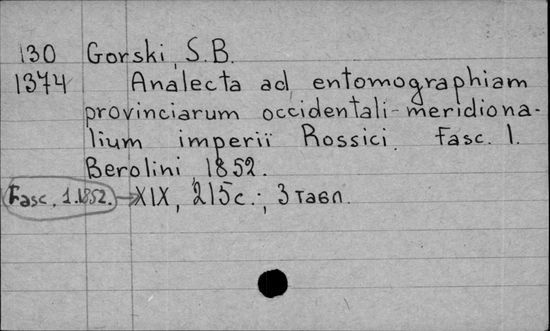 130 Gorski, S.B.
1374 Analecta ad entomographiam
provinciarum occidentali-meridiona-
lium imperii Rossici. Fasc. 1.
Berolini, 1852.
Fasc. 1.1852. → XIX, 215с.; 3 табл.